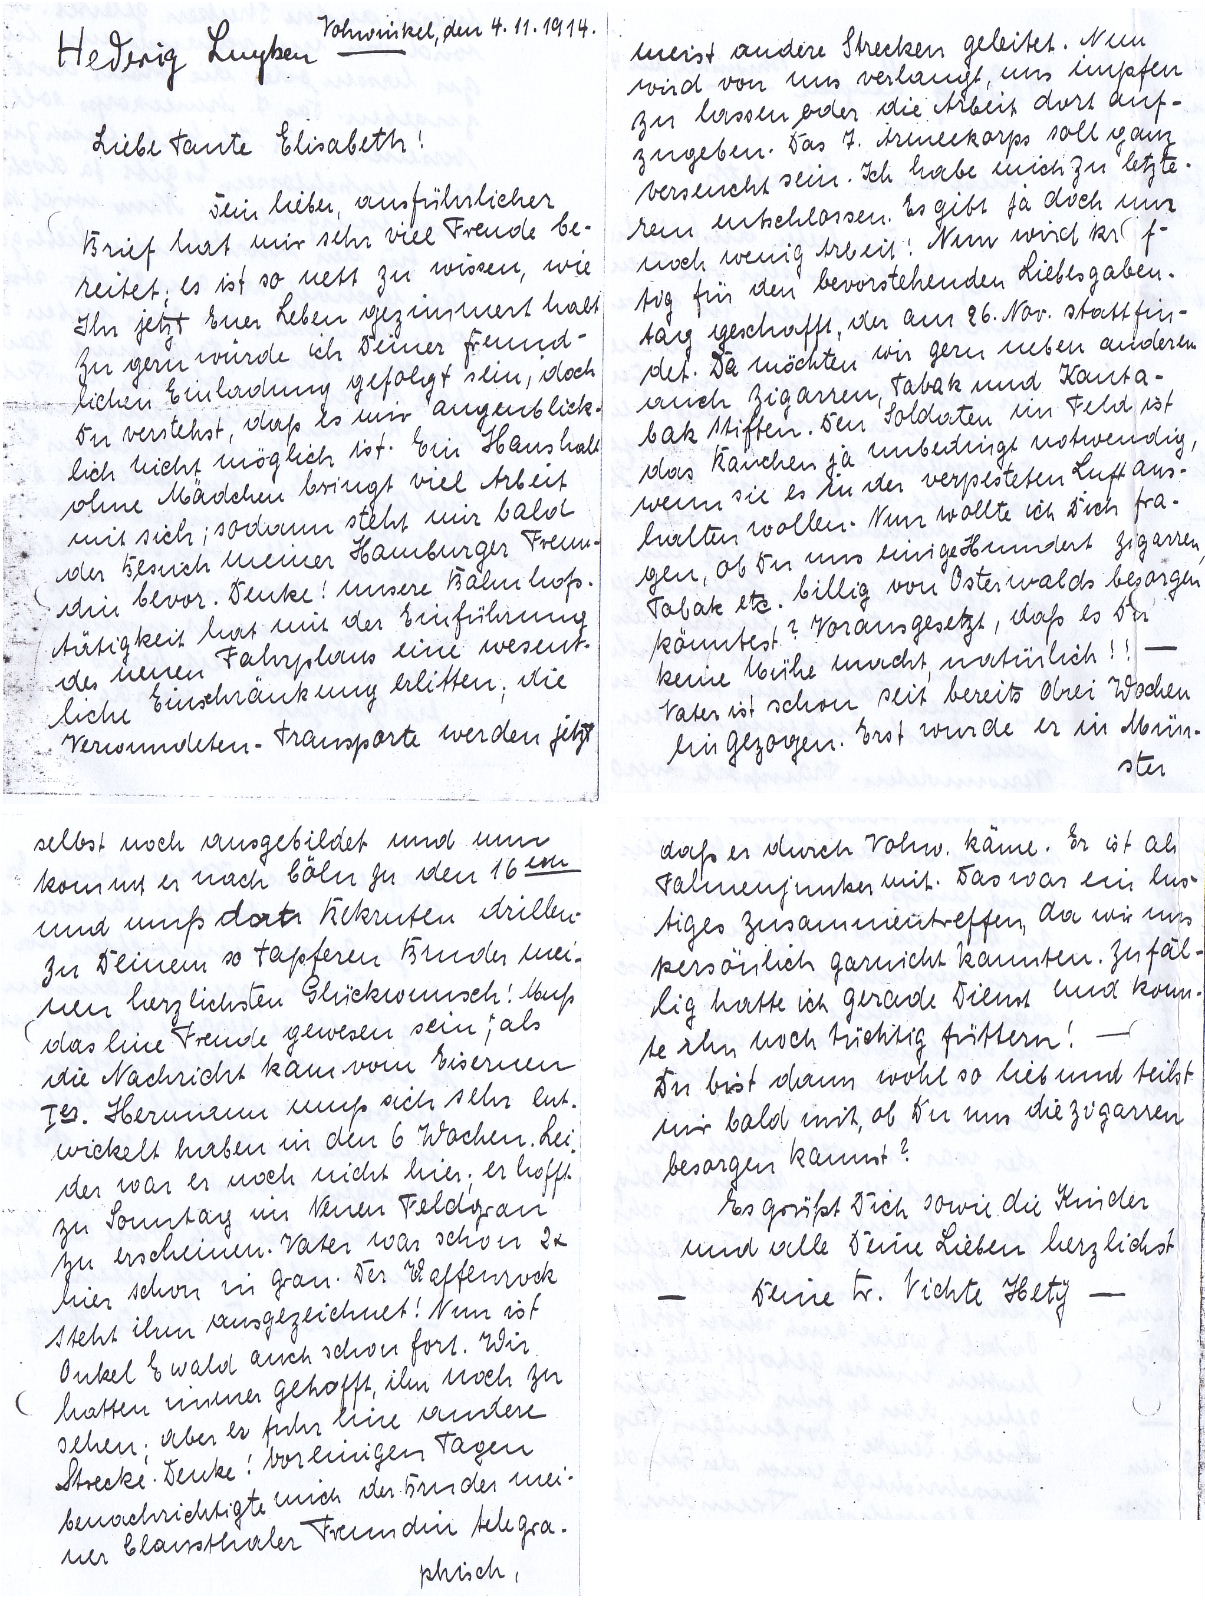 Vohwinkel, den 4.11.1914.
Hedwig Luyken
Liebe Tante Elisabeth!
Dein lieber, ausführlicher
Brief hat mir sehr viel Freude be-
reitet; es ist so nett zu wissen, wie
Ihr jetzt Euer Leben gezimmert habt
Zu gern würde ich Deiner freund-
lichen Einladung gefolgt sein, doch
Du verstehst, daß es mir augenblick-
lich nicht möglich ist. Ein Haushalt
ohne Mädchen bringt viel Arbeit
mit sich; sodann steht mir bald
der Besuch meiner Hamburger Freun-
din bevor. Denke! unsere Bahnhofs-
tätigkeit hat mit der Einführung
des neuen Fahrplans eine wesent-
liche Einschränkung erlitten; die
Verwundeten-Transporte werden jetzt
meist andere Strecken geleitet. Nun
wird von uns verlangt, uns impfen
zu lassen oder die Arbeit dort auf-
zugeben. Das 7. Armeekorps soll ganz
verseucht sein. Ich habe mich zu letzte-
rem entschlossen. Es gibt ja doch nur
noch wenig Arbeit! Nun wird kr f-
tig für den bevorstehenden Liebesgaben-
tag geschafft, der am 26. Nov. stattfin-
det. Da möchten wir gern neben anderem
auch Zigarren, Tabak und Kauta-
bak stiften. Den Soldaten im Feld ist
das Rauchen ja unbedingt notwendig,
wenn sie es in der verpesteten Luft aus-
halten wollen. Nun wollte ich Dich fra-
gen, ob Du uns einige Hundert Zigarren,
Tabak etc. billig von Osterwalds besorgen
könntest? Vorausgesetzt, daß es Dir
keine Mühe macht, natürlich!! —
Vater ist schon seit bereits drei Wochen
eingezogen. Erst wurde er in Mün-
ster
selbst noch ausgebildet und nun
kommt er nach Cöln zu den 16ern
und muß dort Rekruten drillen.
Zu Deinem so tapferen Bruder mei-
nen herzlichsten Glückwunsch! Muß
das eine Freude gewesen sein, als
die Nachricht kam vom Eisernen
Ier. Hermann muß sich sehr ent-
wickelt haben in den 6 Wochen. Lei-
der war er noch nicht hier; er hofft
zu Sonntag im Neuen Feldgrau
zu erscheinen. Vater war schon 2x
hier schon in grau. Der Waffenrock
steht ihm ausgezeichnet! Nun ist
Onkel Ewald auch schon fort. Wir
hatten immer gehofft, ihn noch zu
sehen; aber er fuhr eine andere
Strecke. Denke! Vor einigen Tagen
benachrichtigte mich der Bruder mei-
ner Clausthaler Freundin telegra-
phisch,
daß er durch Vohw. käme. Er ist als
Fahnenjunker mit. Das war ein lus-
tiges Zusammentreffen, da wir uns
persönlich garnicht kannten. Zufäl-
lig hatte ich gerade Dienst und konn-
te ihn noch tüchtig füttern! —
Du bist dann wohl so lieb und teilst
mir bald mit, ob Du uns die Zigarren
besorgen kannst?
Es grüßt Dich sowie die Kinder
und alle Deine Lieben herzlichst
— Deine tr. Nichte Hety —